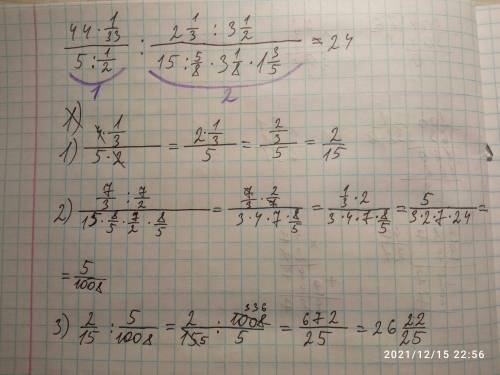 (44 · 1/33)/(5 : 1/2) : (2 1/3 : 3 1/2)/(15 : 5/8 · 3 1/8 · 1 3/5) = 24
1 2
1) (4 · 1/3)/(5 · 2) = (2 · 1/3)/5 = (2/3)/5 = 2/15
2) (7/3 : 7/2)/(15 · 8/5 · 7/2 · 8/5) = (7/3 · 2/7)/(3 · 4 · 7 · 8/5) = (1/3 · 2)/(3 · 4 · 7 · 8/5) = 5/(3 · 2 · 7 · 24) =
= 5/1008
3) 2/15 : 5/1008 = 2/15 5 : 1008 336/5 = 672/25 = 26 22/25
2021/12/15 22:56